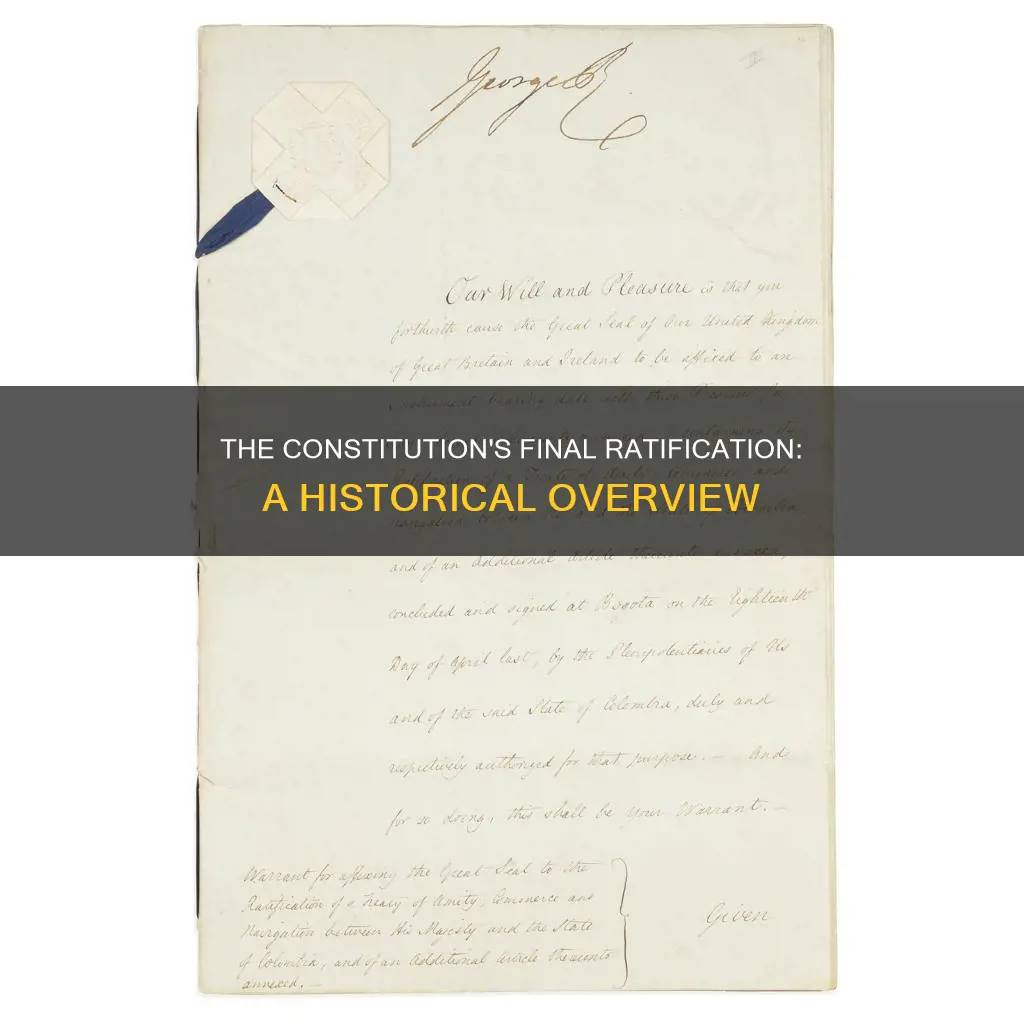 George R
Our Will and Pleasure is that you
forthwith cause the Great Seal of Our United Kingdom
of Great Britain and Ireland to be affixed to an
Instrument bearing date with these Presents
THE CONSTITUTION'S FINAL RATIFICATION:
of a Treaty of Amity, Commerce and
A HISTORICAL OVERVIEW
Navigation between
and of an Additional Article thereunto annexed,
concluded and signed at Bogota on the Eighteenth
Day of April last, by the Plenipotentiaries of Us
and of the said State of Colombia, duly and
respectively authorized for that purpose. — And
for so doing, this shall be your Warrant. —
Warrant for affixing the Great Seal to the
Ratification of a Treaty of Amity, Commerce and
Navigation between His Majesty and the State
of Colombia, and of an Additional Article thereunto
annexed. —
Given